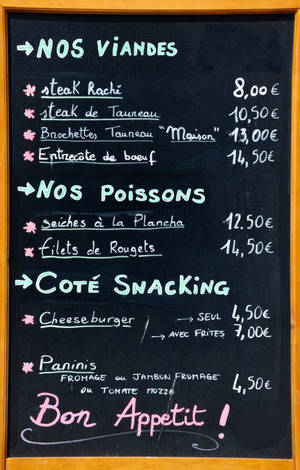 → NOS VIANDES
* steak Haché 8,00€
* steak de Taureau 10,50€
* Brochettes Taureau "Maison" 13,00€
* Entrecôte de boeuf 14,50€
→ NOS POISSONS
* seiches à la Plancha 12.50€
* filets de Rougets 14,50€
→ COTÉ SNACKING
* Cheeseburger → SEUL 4,50€
→ AVEC FRITES 7,00€
* Paninis
FROMAGE ou JAMBON FROMAGE
ou TOMATE MOZZA 4,50€
Bon Appetit !